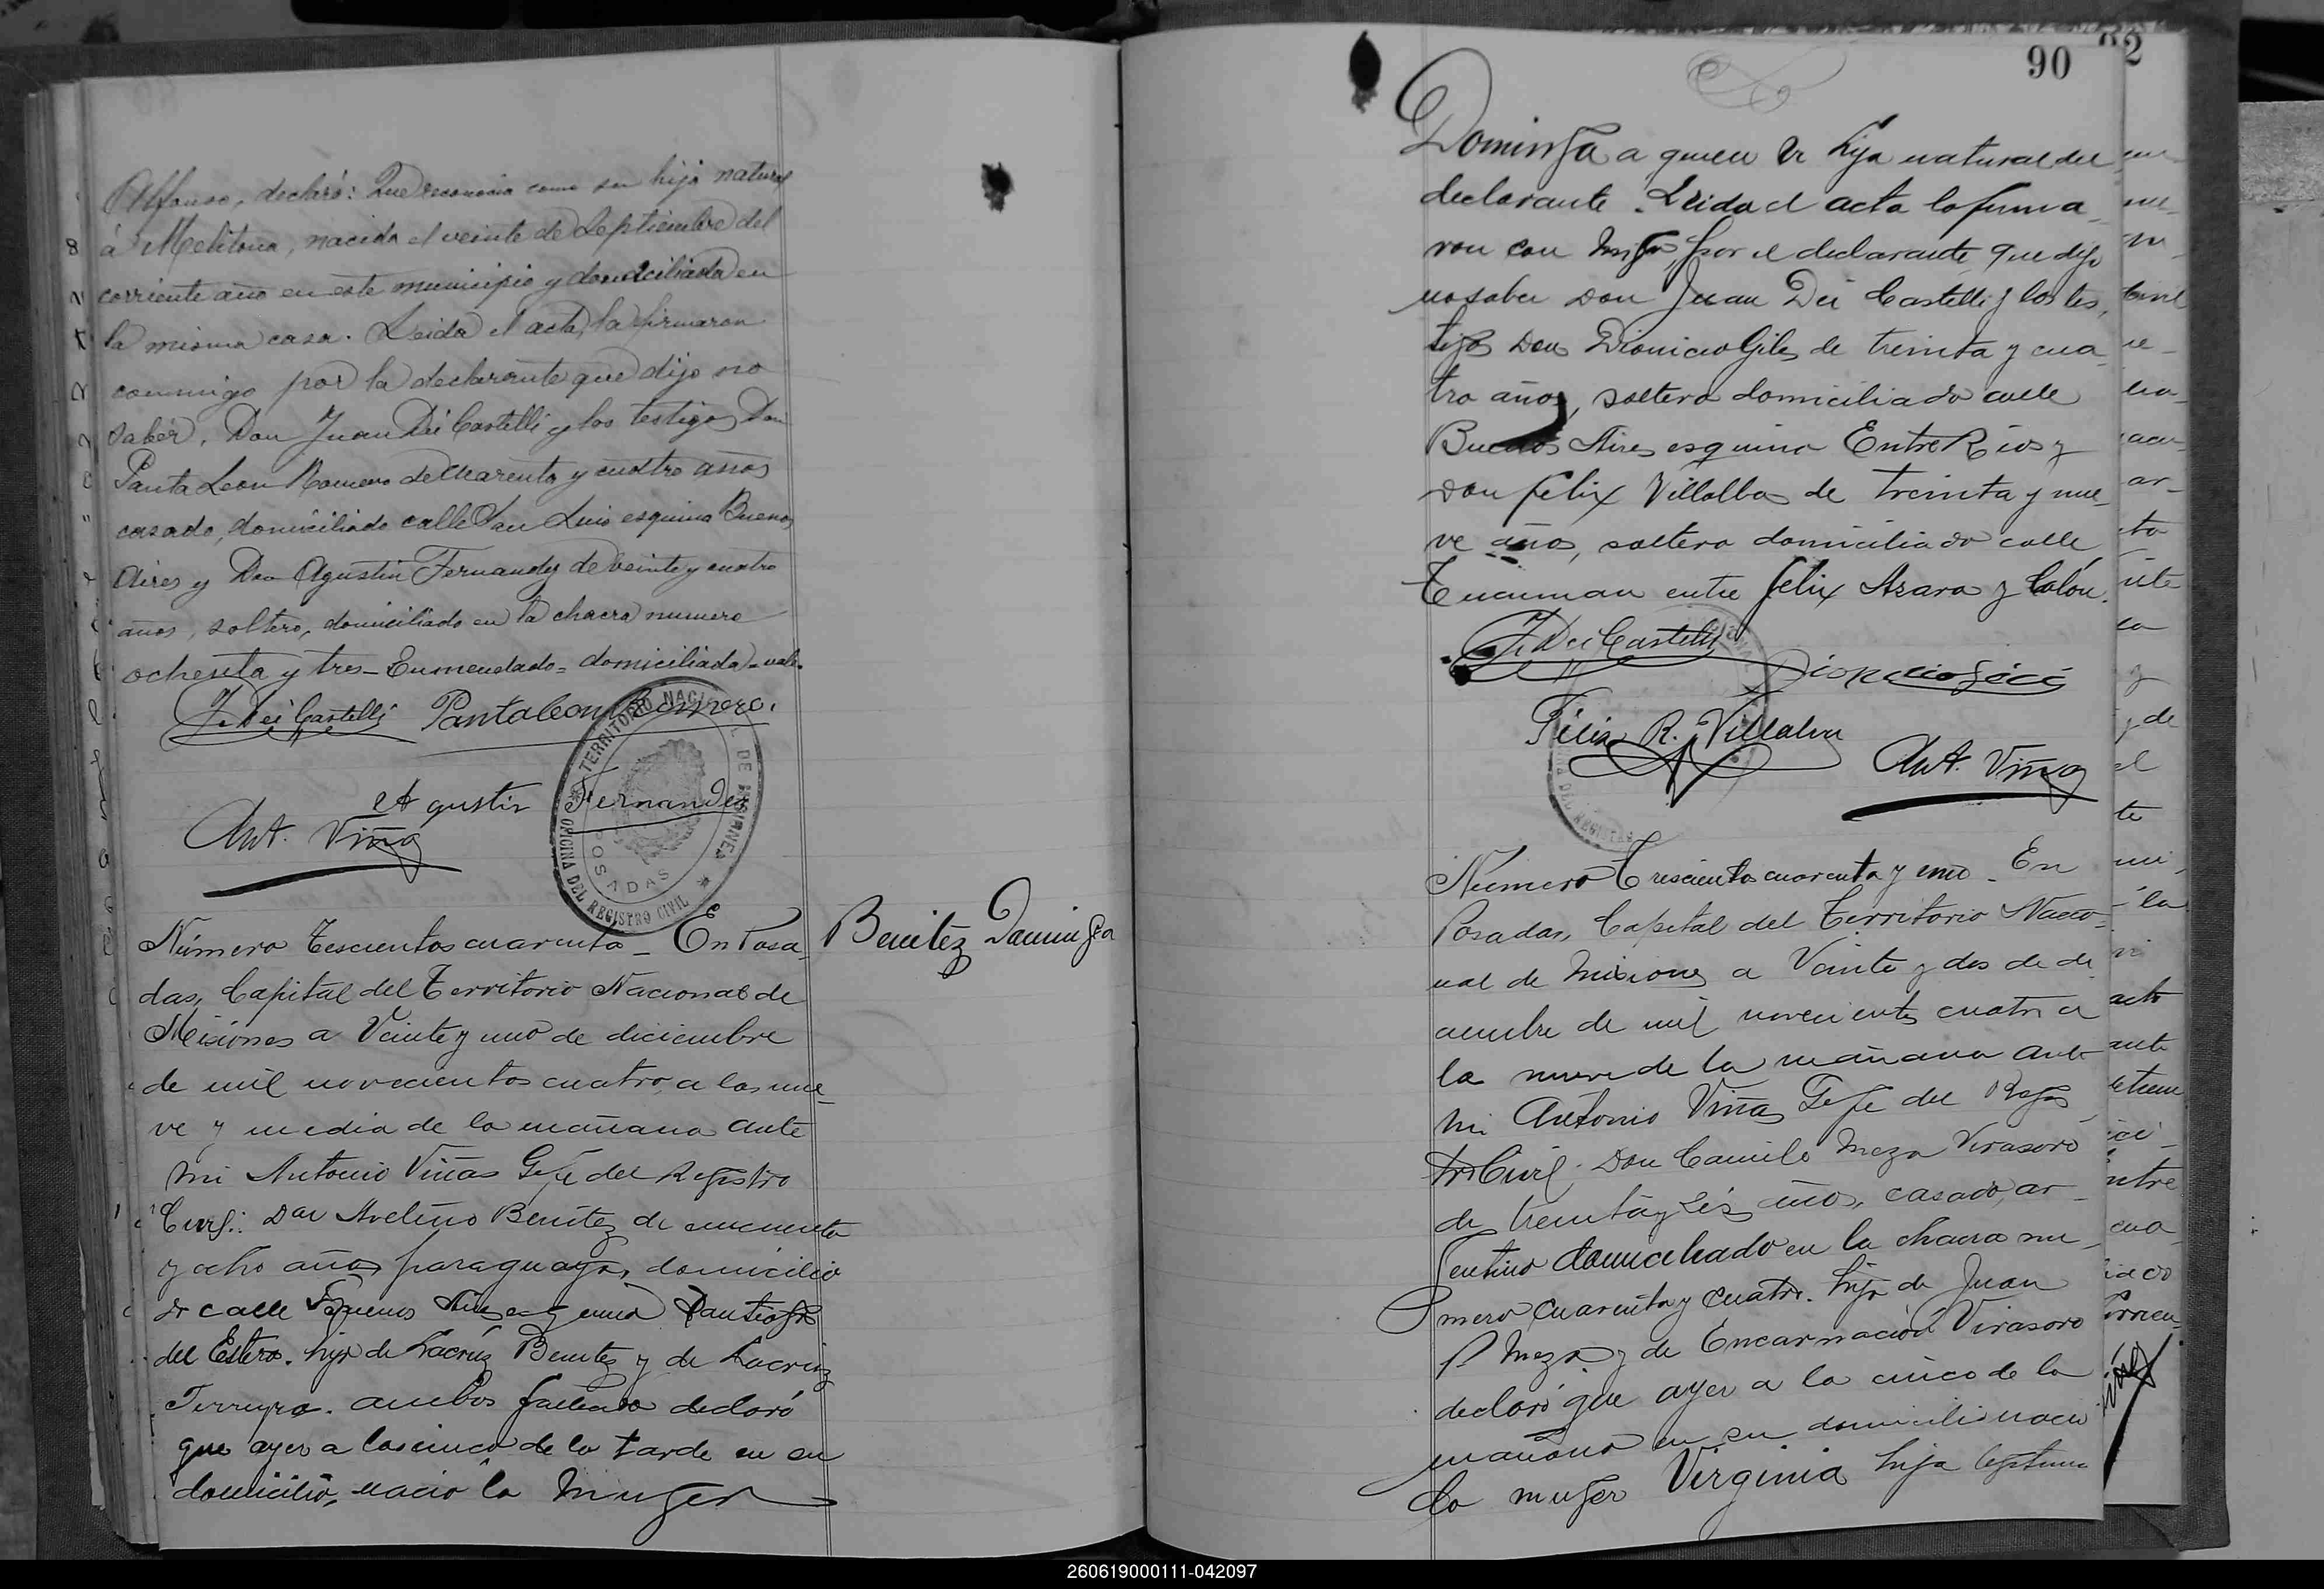 Alfonso, declaró: Que reconocia como su hija natural
á Melitona, nacida el veinte de Septiembre del
corriente año en este municipio y domiciliada en
la misma casa. Leida el acta, la firmaron
conmigo por la declarante que dijo no
saber, Don Juan Dei Castelli y los testigos Don
Panta Leon Romero de cuarenta y cuatro años
casado, domiciliado calle San Luis esquina Buenos
Aires y Don Agustin Fernandez de veinte y cuatro
años, soltero, domiciliado en la chacra numero
ochenta y tres - Enmendado = domiciliada = vale.
J. Dei Castelli Pantaleon Romero.
Agustin Fernandez
Ant. Viñas
TERRITORIO NACIONAL DE MISIONES
POSADAS
OFICINA DEL REGISTRO CIVIL
Número Tescientos cuarenta - En Posa
Benitez Dominga
das, Capital del Territorio Nacional de
Misiones a Veinte y uno de diciembre
de mil novecientos cuatro, a las nue
ve y media de la mañana ante
mi Antonio Viñas Gefe del Registro
Civil: Don Avelino Benitez de cincuenta
y ocho años, paraguayo, domicilia
do calle Buenos Aires esquina Santiago
del Estero. hijo de Lacrúz Benitez y de Lacruz
Ferreyra. ambos declaró
que ayer a las cinco de la tarde en su
domicilio, nació la muger
90
Dominga a quien hija natural del
declarante. Leida el acta la firma
ron con migo, por el declarante que dijo
no saber Don Juan Dei Castelli y los tes
tigos Don Dionicio Giles de treinta y cua
tro años, soltero domiciliado calle
Buenos Aires esquina Entre Rios y
Don Felix Villalba de treinta y nue
ve años, soltero domiciliado calle
Tucuman entre Felix Azara y Colón.
J. Dei Castelli
Felix R. Villalva
Ant. Viñas
Número Trescientos cuarenta y uno - En
Posadas, Capital del Territorio Nacio
nal de Misiones a Veinte y dos de di
ciembre de mil novecientos cuatro a
las nueve de la mañana ante
mi Antonio Viñas Gefe del Regis
tro Civil, Don Camilo Meza Virasoro
de treinta y seis años, casado, ar
gentino domiciliado en la chacra nu
mero cuarenta y cuatro. hijo de Juan
P. Meza y de Encarnación Virasoro
declaró que ayer a las cinco de la
mañana en su domicilio nació
la muger Virginia hija legitima
260619000111-042097